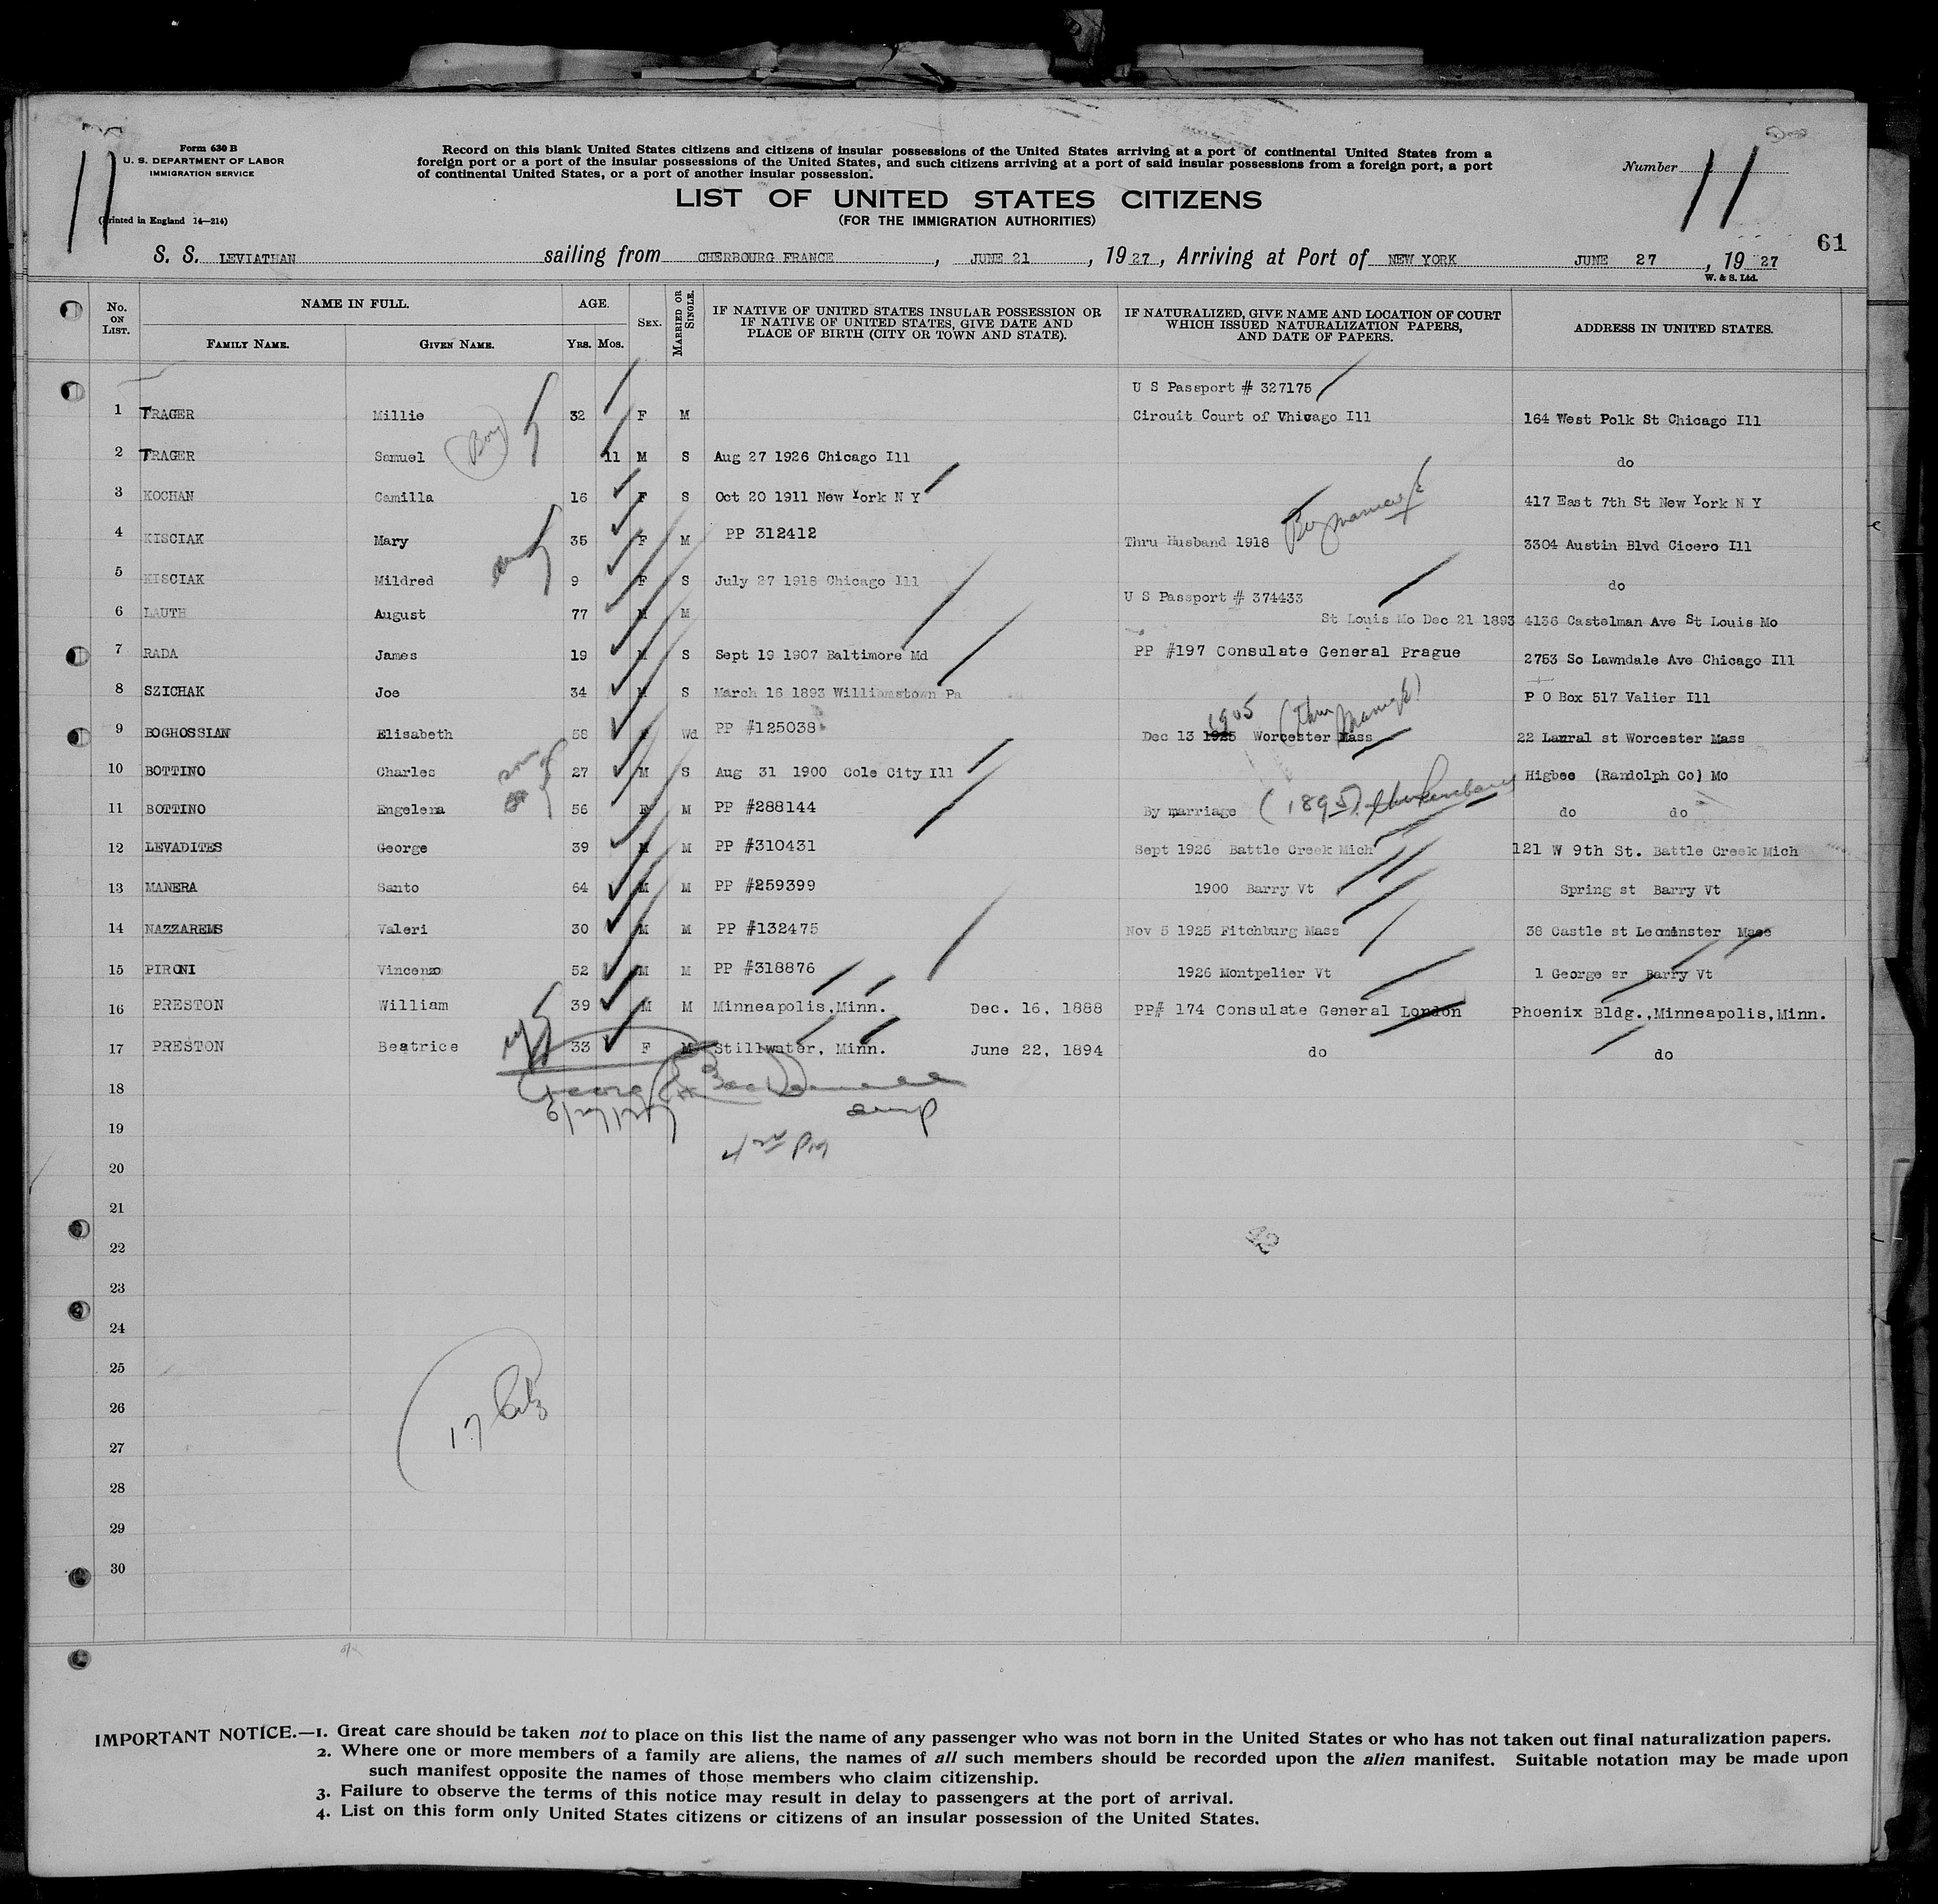 Form 630 B
U. S. DEPARTMENT OF LABOR
IMMIGRATION SERVICE
(Printed in England 14—214)
11
Record on this blank United States citizens and citizens of insular possessions of the United States arriving at a port of continental United States from a
foreign port or a port of the insular possessions of the United States, and such citizens arriving at a port of said insular possessions from a foreign port, a port
of continental United States, or a port of another insular possession.
LIST OF UNITED STATES CITIZENS
(FOR THE IMMIGRATION AUTHORITIES)
Number 11
61
S. S. LEVIATHAN sailing from CHERBOURG FRANCE, JUNE 21, 1927, Arriving at Port of NEW YORK JUNE 27, 1927
W. & S. Ltd.
No. ON LIST. NAME IN FULL. FAMILY NAME. GIVEN NAME. AGE. YRS. MOS. SEX. MARRIED OR SINGLE. IF NATIVE OF UNITED STATES INSULAR POSSESSION OR IF NATIVE OF UNITED STATES, GIVE DATE AND PLACE OF BIRTH (CITY OR TOWN AND STATE). IF NATURALIZED, GIVE NAME AND LOCATION OF COURT WHICH ISSUED NATURALIZATION PAPERS, AND DATE OF PAPERS. ADDRESS IN UNITED STATES.
U S Passport # 327175
1 TRAGER Millie 32 F M Circuit Court of Vhivago Ill 164 West Polk St Chicago Ill
2 TRAGER Samuel (Boy) 11 M S Aug 27 1926 Chicago Ill do
3 KOCHAN Camilla 16 F S Oct 20 1911 New York N Y 417 East 7th St New York N Y
4 KISCIAK Mary 35 F M PP 312412 Thru Husband 1918 By marriage 3304 Austin Blvd Cicero Ill
5 KISCIAK Mildred 9 F S July 27 1918 Chicago Ill do
U S Passport # 374433
6 LAUTH August 77 M M St Louis Mo Dec 21 1893 4136 Castelman Ave St Louis Mo
7 RADA James 19 M S Sept 19 1907 Baltimore Md PP #197 Consulate General Prague 2753 So Lawndale Ave Chicago Ill
8 SZICHAK Joe 34 M S March 16 1893 Williamstown Pa P O Box 517 Valier Ill
9 BOGHOSSIAN Elisabeth 58 F Wd PP #125038 Dec 13 1925 1905 Worcester Mass (thru Marriage) 22 Laural st Worcester Mass
10 BOTTINO Charles 27 M S Aug 31 1900 Cole City Ill Higbee (Randolph Co) Mo
11 BOTTINO Engelena 56 F M PP #288144 By marriage (1895) do do
12 LEVADITES George 39 M M PP #310431 Sept 1926 Battle Creek Mich 121 W 9th St. Battle Creek Mich
13 MANERA Santo 64 M M PP #259399 1900 Barry Vt Spring st Barry Vt
14 NAZZAREMS Valeri 30 M M PP #132475 Nov 5 1925 Fitchburg Mass 38 Castle st Leominster Mass
15 PIRONI Vincenzo 52 M M PP #318876 1926 Montpelier Vt 1 George sr Barry Vt
16 PRESTON William 39 M M Minneapolis,Minn. Dec. 16, 1888 PP# 174 Consulate General London Phoenix Bldg.,Minneapolis,Minn.
17 PRESTON Beatrice 33 F M Stillwater, Minn. June 22, 1894 do do
18
19
20
21
22
23
24
25
26
27
28
29
30
17
IMPORTANT NOTICE.—1. Great care should be taken not to place on this list the name of any passenger who was not born in the United States or who has not taken out final naturalization papers.
2. Where one or more members of a family are aliens, the names of all such members should be recorded upon the alien manifest. Suitable notation may be made upon
such manifest opposite the names of those members who claim citizenship.
3. Failure to observe the terms of this notice may result in delay to passengers at the port of arrival.
4. List on this form only United States citizens or citizens of an insular possession of the United States.